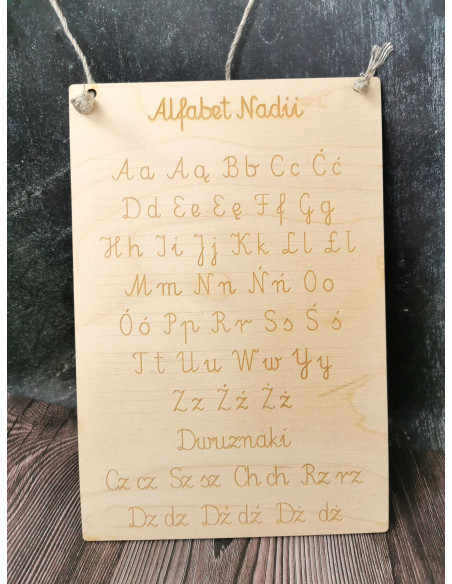 Alfabet Nadii
Aa Aą Bb Cc Ćć
Dd Ee Eę Ff Gg
Hh Ii Jj Kk Ll Łł
Mm Nn Ńń Oo
Óó Pp Rr Ss Śś
Tt Uu Ww Yy
Zz Źź Żż
Dwuznaki
Cz cz Sz sz Ch ch Rz rz
Dz dz Dź dź Dż dż